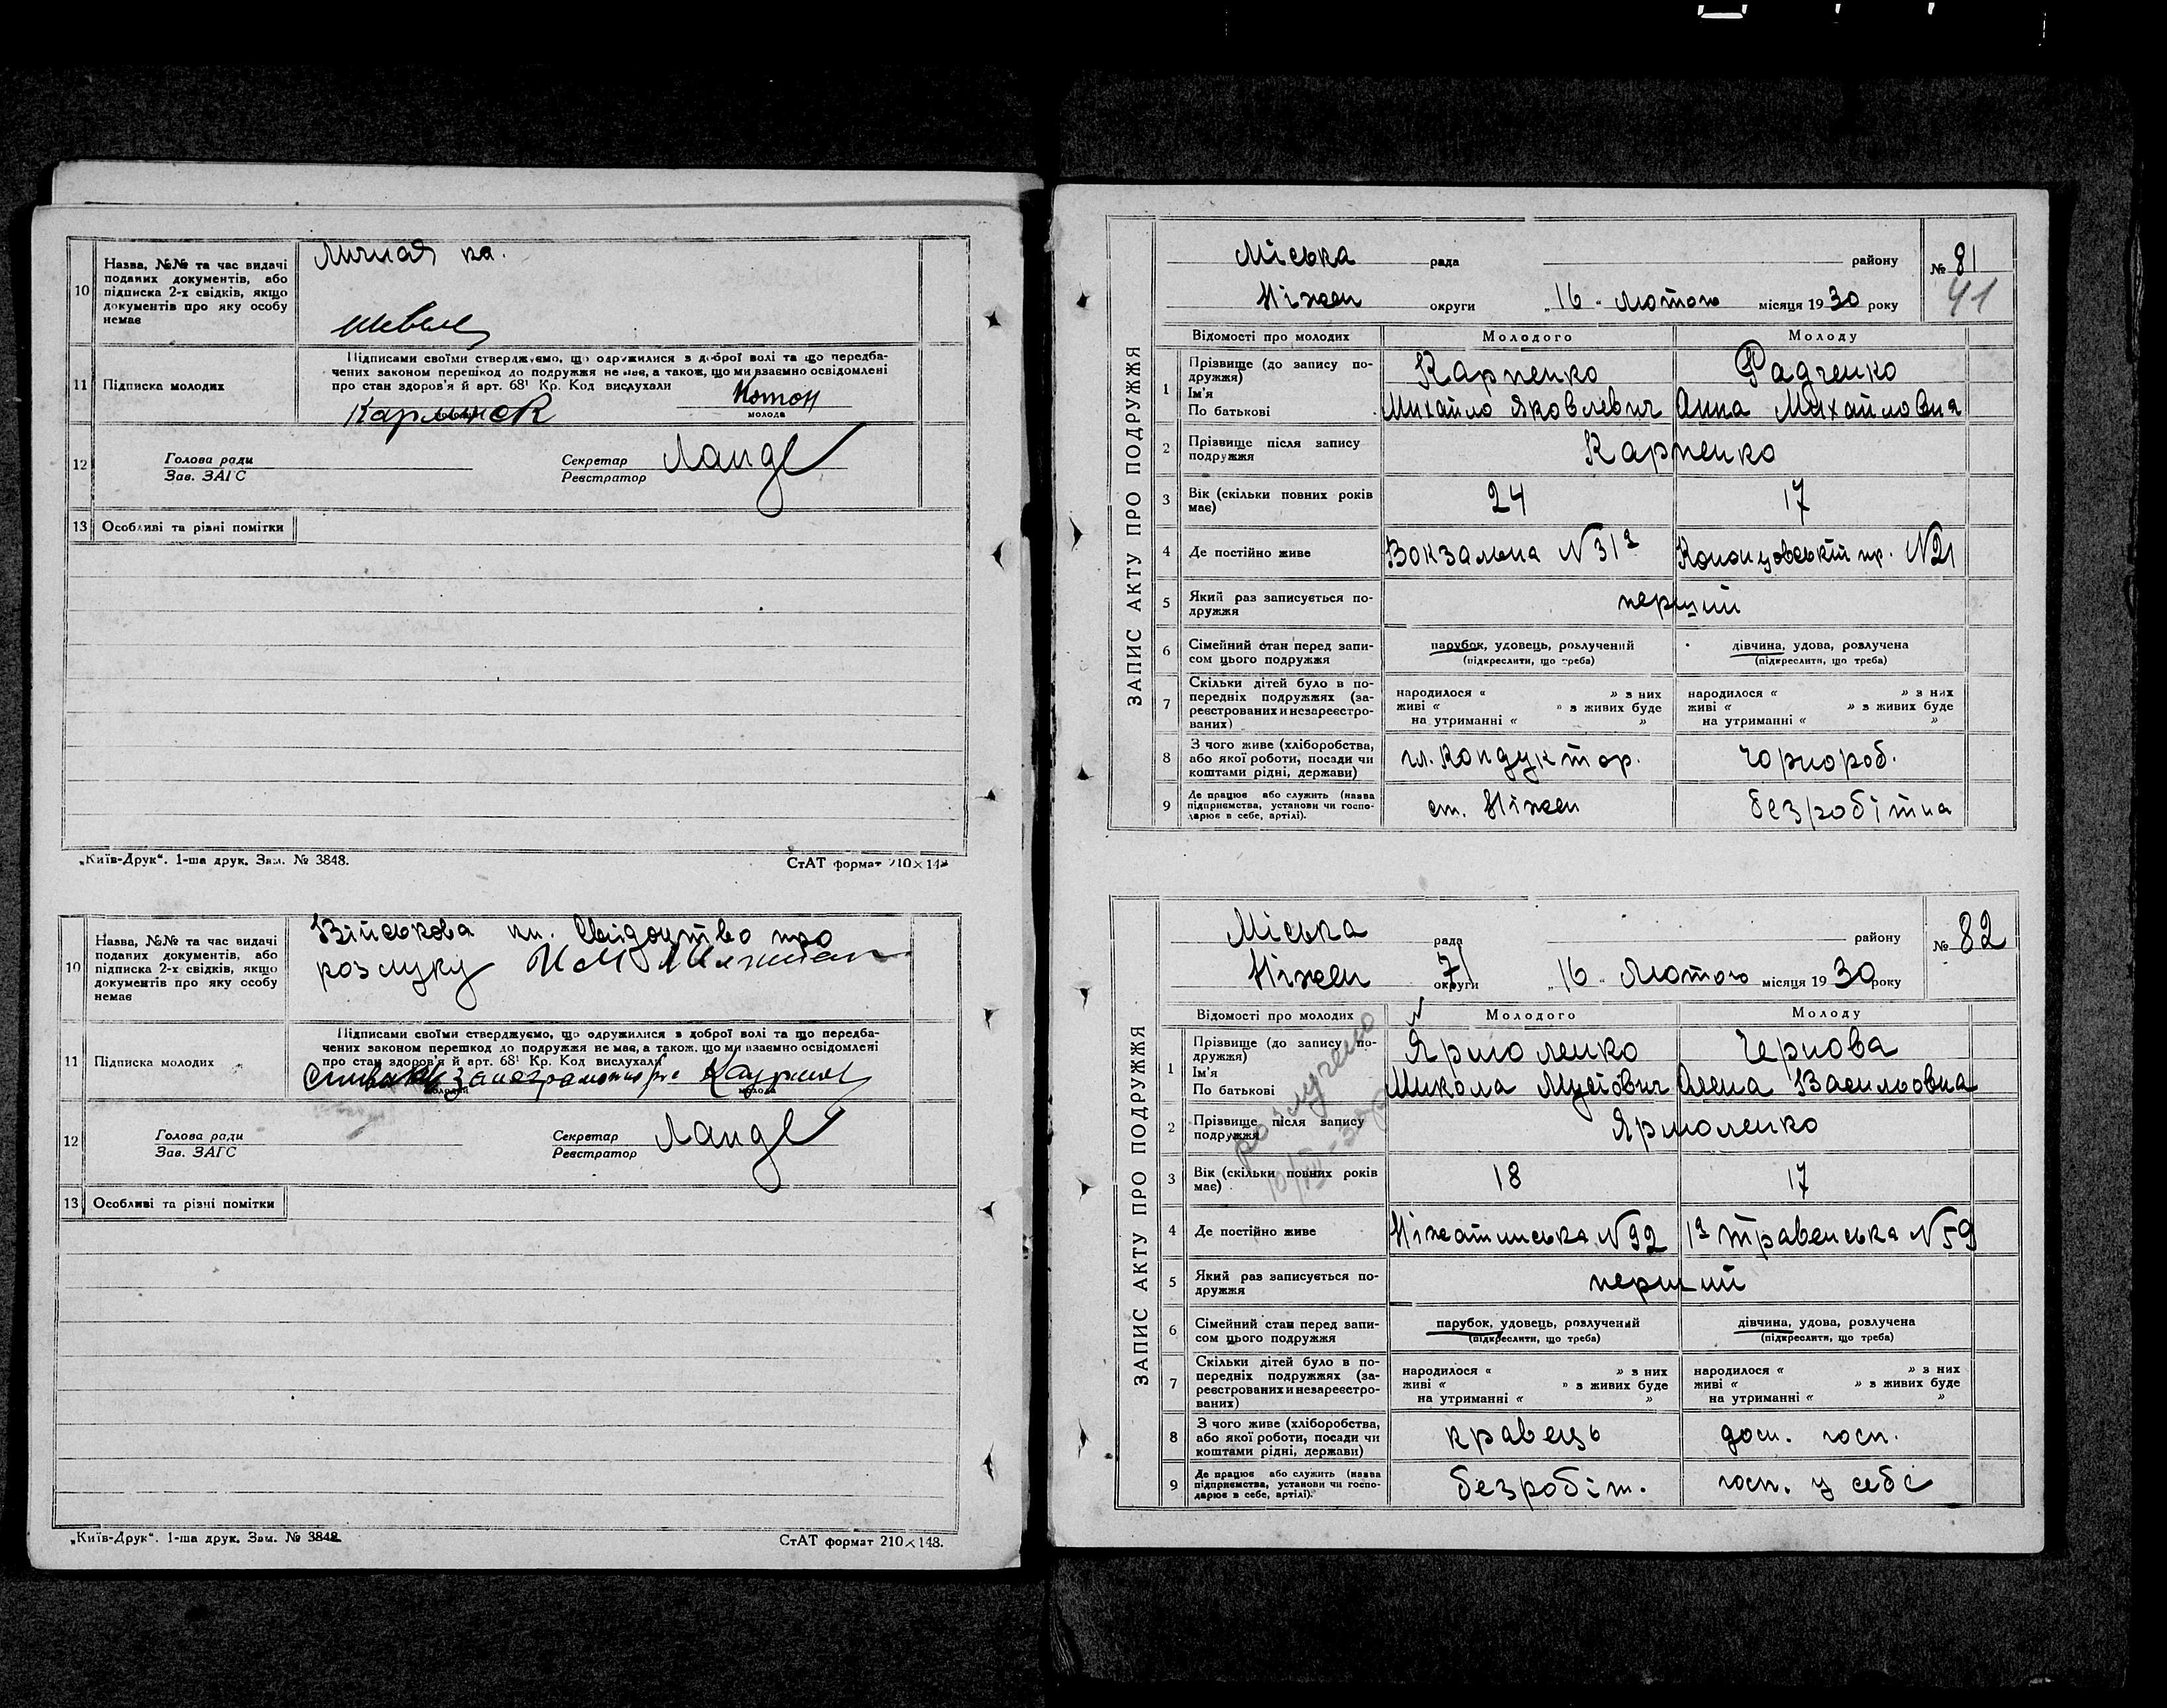 10 Назва, №№ та час видачі поданих документів, або підписка 2-х свідків, якщо документів про яку особу немає
Личная кн.
11 Підписка молодих
Підписами своїми стверджуємо, що одружилися з доброї волі та що передба-
чених законом перешкод до подружжя не має, а також, що ми взаємно освідомлені
про стан здоров'я й арт. 68¹ Кр. Код вислухали
молода
12 Голова ради
Зав. ЗАГС
Секретар
Реєстратор
Ланде
13 Особливі та різні помітки
„Київ-Друк“. 1-ша друк. Зам. № 3848.
СтАТ формат 210×148
10 Назва, №№ та час видачі поданих документів, або підписка 2-х свідків, якщо документів про яку особу немає
Військова кн. Свідоцтво про
розлуку
11 Підписка молодих
Підписами своїми стверджуємо, що одружилися з доброї волі та що передба-
чених законом перешкод до подружжя не має, а також, що ми взаємно освідомлені
про стан здоров'я й арт. 68¹ Кр. Код вислухали
молода
12 Голова ради
Зав. ЗАГС
Секретар
Реєстратор
Ланде
13 Особливі та різні помітки
„Київ-Друк“. 1-ша друк. Зам. № 3848
СтАТ формат 210×148.
ЗАПИС АКТУ ПРО ПОДРУЖЖЯ
Міська рада району № 81
41
Ніжен округи „16“ лютого місяця 1930 року
Відомості про молодих Молодого Молоду
1 Прізвище (до запису подружжя) Карпенко Радченко
Ім'я
По батькові Михайло Яковлевич Анна Михайловна
2 Прізвище після запису подружжя Карпенко
3 Вік (скільки повних років має) 24 17
4 Де постійно живе Вокзальна N 31 N21
5 Який раз записується подружжя перший
6 Сімейний стан перед записом цього подружжя парубок, удовець, розлучений дівчина, удова, розлучена
(підкреслити, що треба) (підкреслити, що треба)
7 Скільки дітей було в попередніх подружжях (зареєстрованих и незареєстрованих)
народилося « » з них народилося « » з них
живі « » з живих буде живі « » з живих буде
на утриманні « » на утриманні « »
8 З чого живе (хліборобства, або якої роботи, посади чи коштами рідні, держави) гл. кондуктор. чорнороб.
9 Де працює або служить (назва підприємства, установи чи господарює в себе, артілі). ст. Ніжен безробітна
ЗАПИС АКТУ ПРО ПОДРУЖЖЯ
Міська рада району № 82
Ніжен округи „16“ Лютого місяця 1930 року
71
Відомості про молодих Молодого Молоду
розлучено
1 Прізвище (до запису подружжя) Ярмоленко Чернова
Ім'я
По батькові Микола Мусіович Олена Васильовна
2 Прізвище після запису подружжя Ярмоленко
3 Вік (скільки повних років має) 18 17
4 Де постійно живе N 92 1го Травенська N 59
5 Який раз записується подружжя перший
6 Сімейний стан перед записом цього подружжя парубок, удовець, розлучений дівчина, удова, розлучена
(підкреслити, що треба) (підкреслити, що треба)
7 Скільки дітей було в попередніх подружжях (зареєстрованих и незареєстрованих)
народилося « » з них народилося « » з них
живі « » з живих буде живі « » з живих буде
на утриманні « » на утриманні « »
8 З чого живе (хліборобства, або якої роботи, посади чи коштами рідні, держави) кравець дом. госп.
9 Де працює або служить (назва підприємства, установи чи господарює в себе, артілі). безробіт. госп. у себе